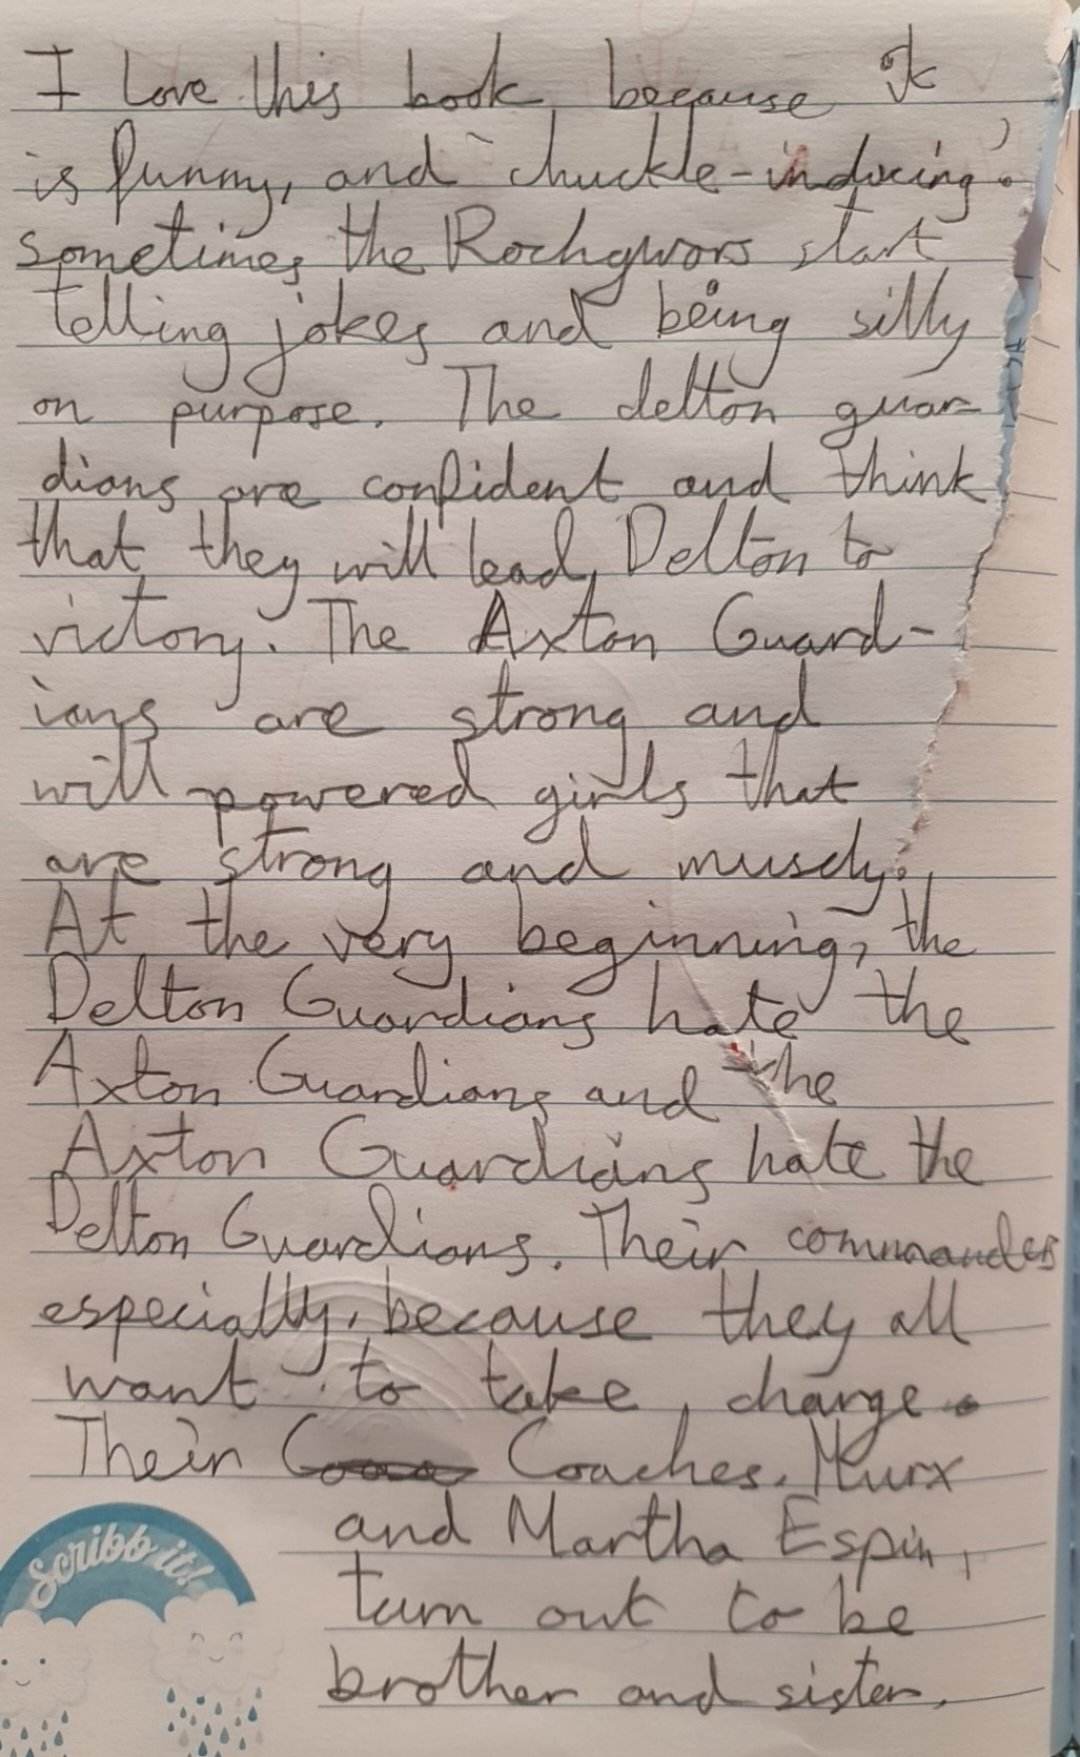 I love this book, because it
is funny, and chuckle-inducing.
sometimes the Rochgwors start
telling jokes and being silly
on purpose. The delton guar-
dians are confident and think
that they will lead Delton to
victory. The Axton Guard-
ians are strong and
will powered girls that
are strong and muscly.
At the very beginning, the
Delton Guardians hate the
Axton Guardians and the
Axton Guardians hate the
Delton Guardians. Their commanders
especially, because they all
want to take charge.
Their Coaches. Murx
and Martha Espin,
turn out to be
brother and sister.
Scribb it!